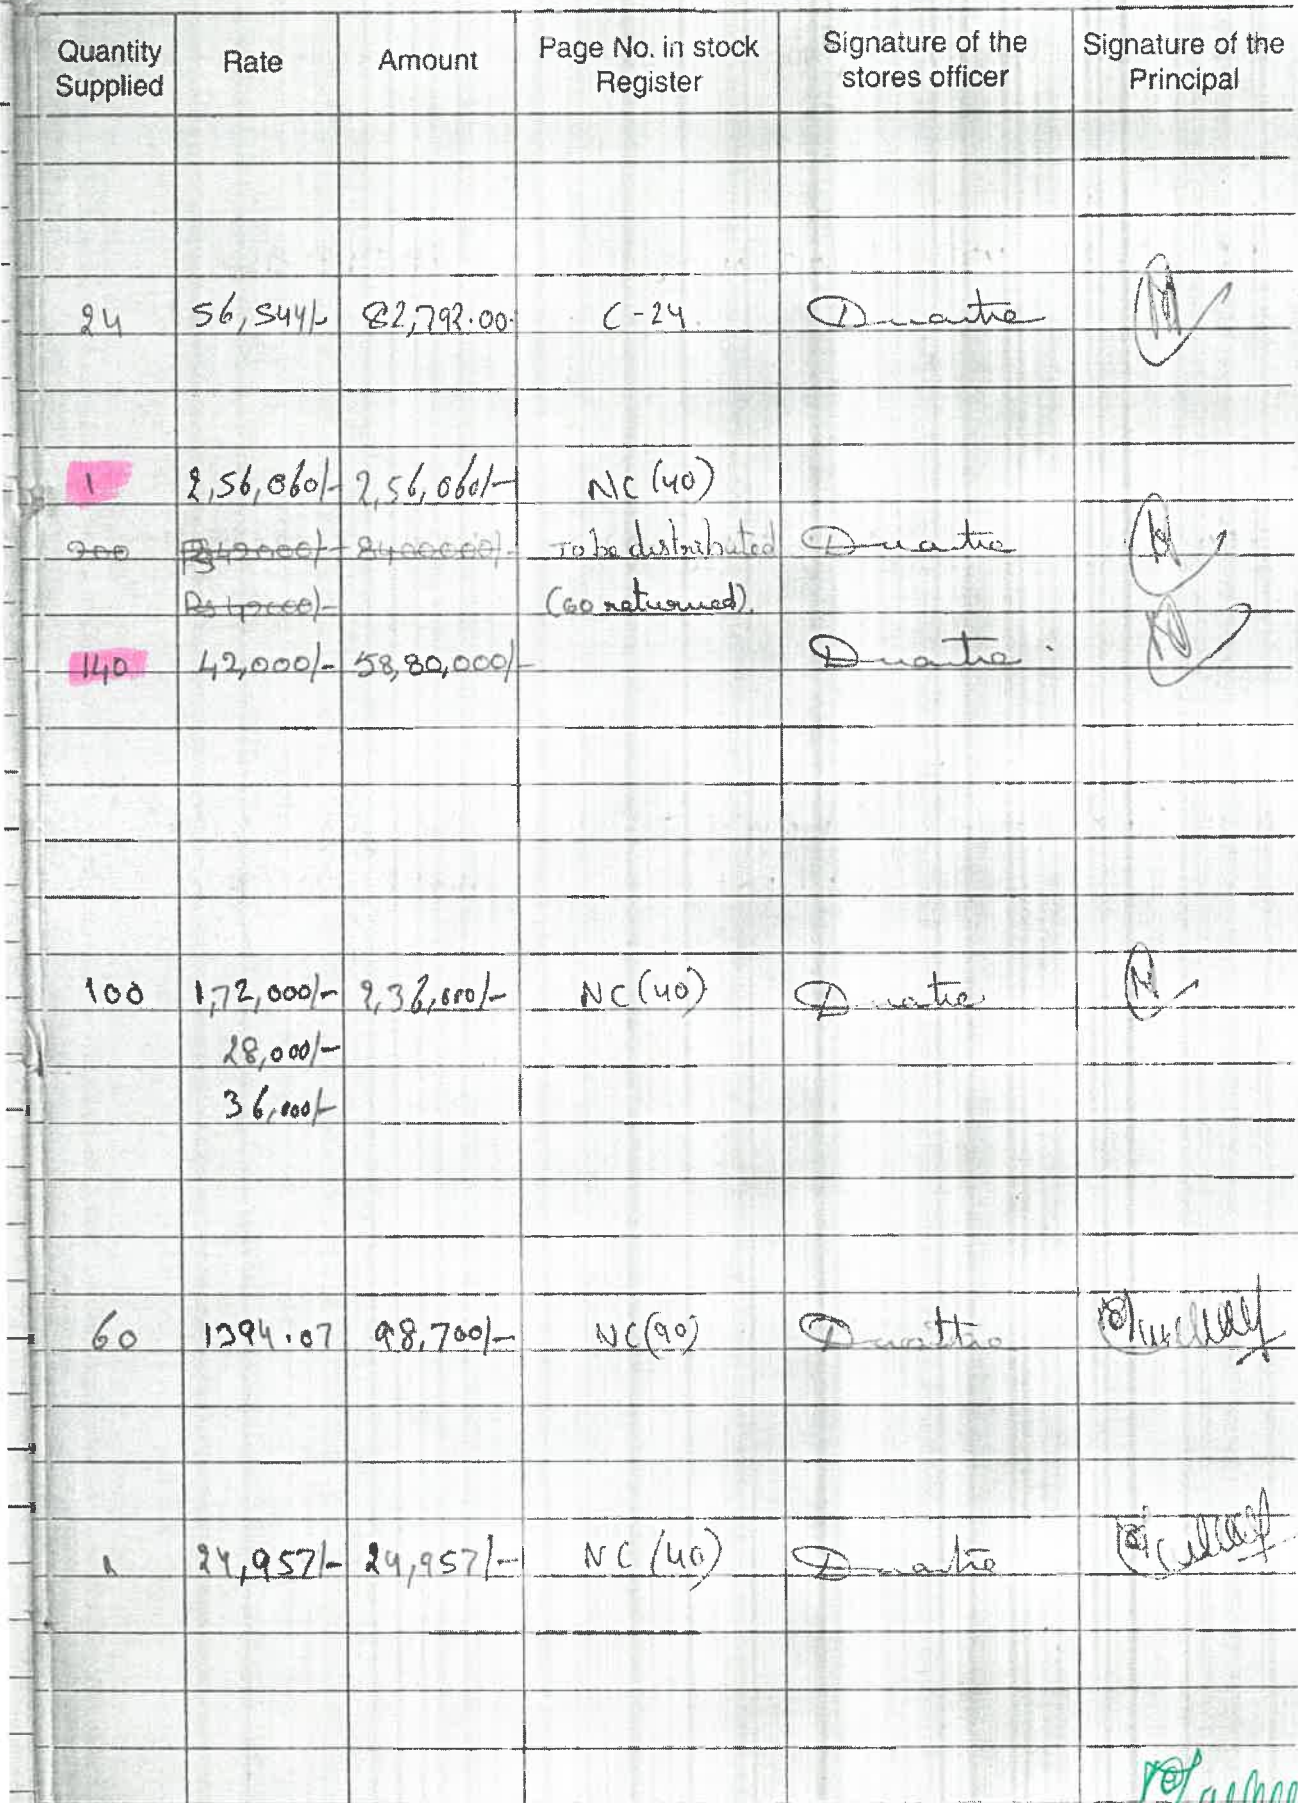 Quantity Supplied Rate Amount Page No. in stock Register Signature of the stores officer Signature of the Principal
24 56,544/- 82,792.00 C-24
1 2,56,060/- 2,56,060/- NC (40)
200 8400000/- To be distributed
(60 returned).
140 42,000/- 58,80,000/-
100 1,72,000/- 2,36,000/- NC (40)
28,000/-
36,000/-
60 1394.07 98,700/- NC(90)
1 24,957/- 24,957/- NC (40)